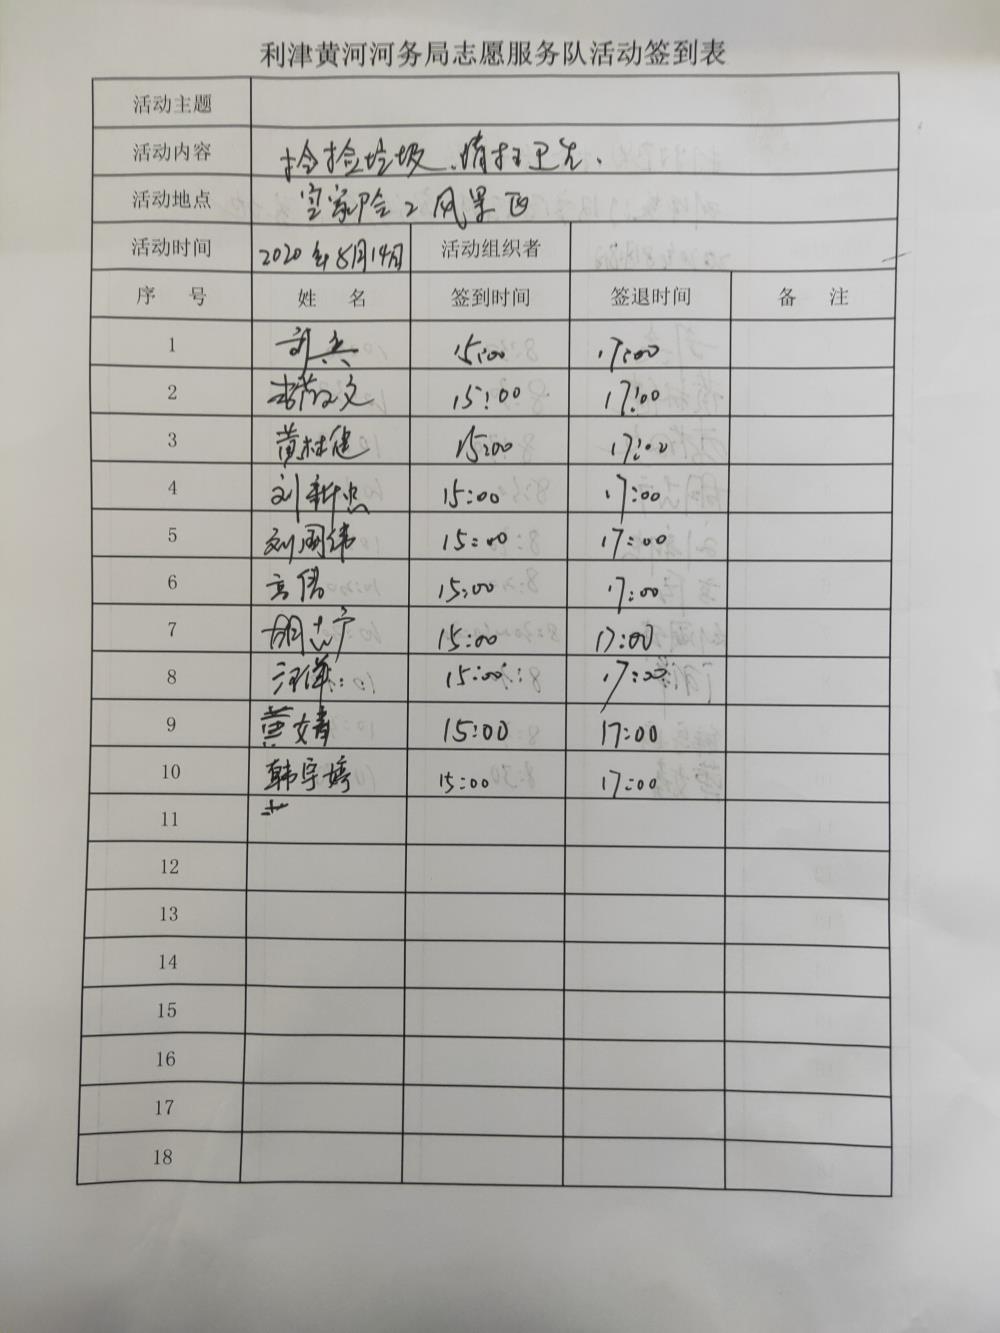 利津黄河河务局志愿服务队活动签到表
活动主题
活动内容 捡拾垃圾、清扫卫生.
活动地点 宫家险工风景区
活动时间 2020年8月14日 活动组织者
序 号 姓 名 签到时间 签退时间 备 注
1 刘兵 15:00 17:00
2 15:00 17:00
3 黄林健 15:00 17:00
4 刘新忠 15:00 17:00
5 刘国纬 15:00 17:00
6 15:00 17:00
7 胡志宁 15:00 17:00
8 汪洋 15:00 17:00
9 黄婧 15:00 17:00
10 韩宇婷 15:00 17:00
11
12
13
14
15
16
17
18